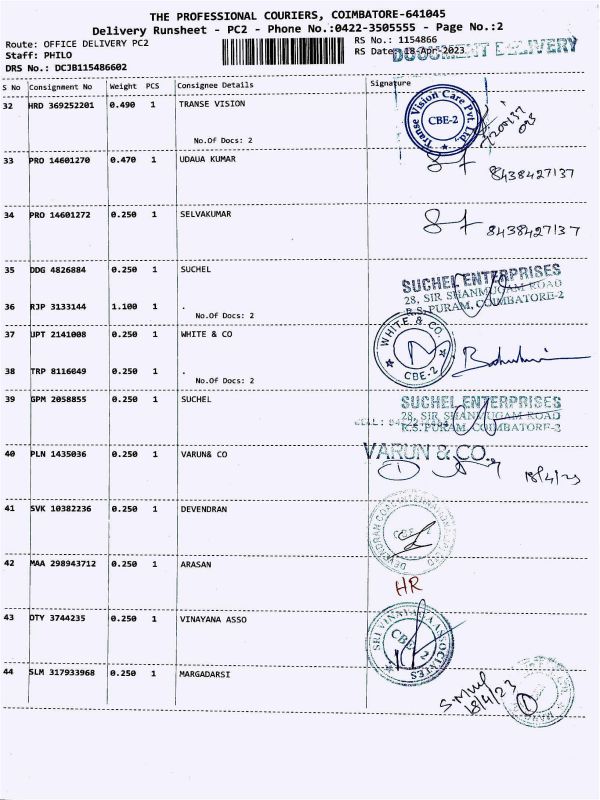 THE PROFESSIONAL COURIERS, COIMBATORE-641045
Delivery Runsheet - PC2 - Phone No.:0422-3505555 - Page No.:2
Route: OFFICE DELIVERY PC2
RS No.: 1154866
Staff: PHILO
RS Date: 18-Apr-2023
DOCUMENT DELIVERY
DRS No.: DCJB115486602
S No Consignment No Weight PCS Consignee Details Signature
32 HRD 369252201 0.490 1 TRANSE VISION
Transe Vision Care Pvt. Ltd., CBE-2
No.Of Docs: 2
33 PRO 14601270 0.470 1 UDAUA KUMAR
8438427137
34 PRO 14601272 0.250 1 SELVAKUMAR
8438427137
35 DDG 4826884 0.250 1 SUCHEL
SUCHEL ENTERPRISES
28, SIR SHANMUGAM ROAD
R.S. PURAM, COIMBATORE-2
36 RJP 3133144 1.100 1 .
No.Of Docs: 2
37 UPT 2141008 0.250 1 WHITE & CO
WHITE & CO. CBE-2
38 TRP 8116049 0.250 1 .
No.Of Docs: 2
39 GPM 2058855 0.250 1 SUCHEL
SUCHEL ENTERPRISES
28, SIR SHANMUGAM ROAD
R.S. PURAM, COIMBATORE-2
40 PLN 1435036 0.250 1 VARUN& CO
VARUN & CO.
1
18/4/23
41 SVK 10382236 0.250 1 DEVENDRAN
42 MAA 298943712 0.250 1 ARASAN
HR
43 OTY 3744235 0.250 1 VINAYANA ASSO
CBE-2
44 SLM 317933968 0.250 1 MARGADARSI
18/4/23
1